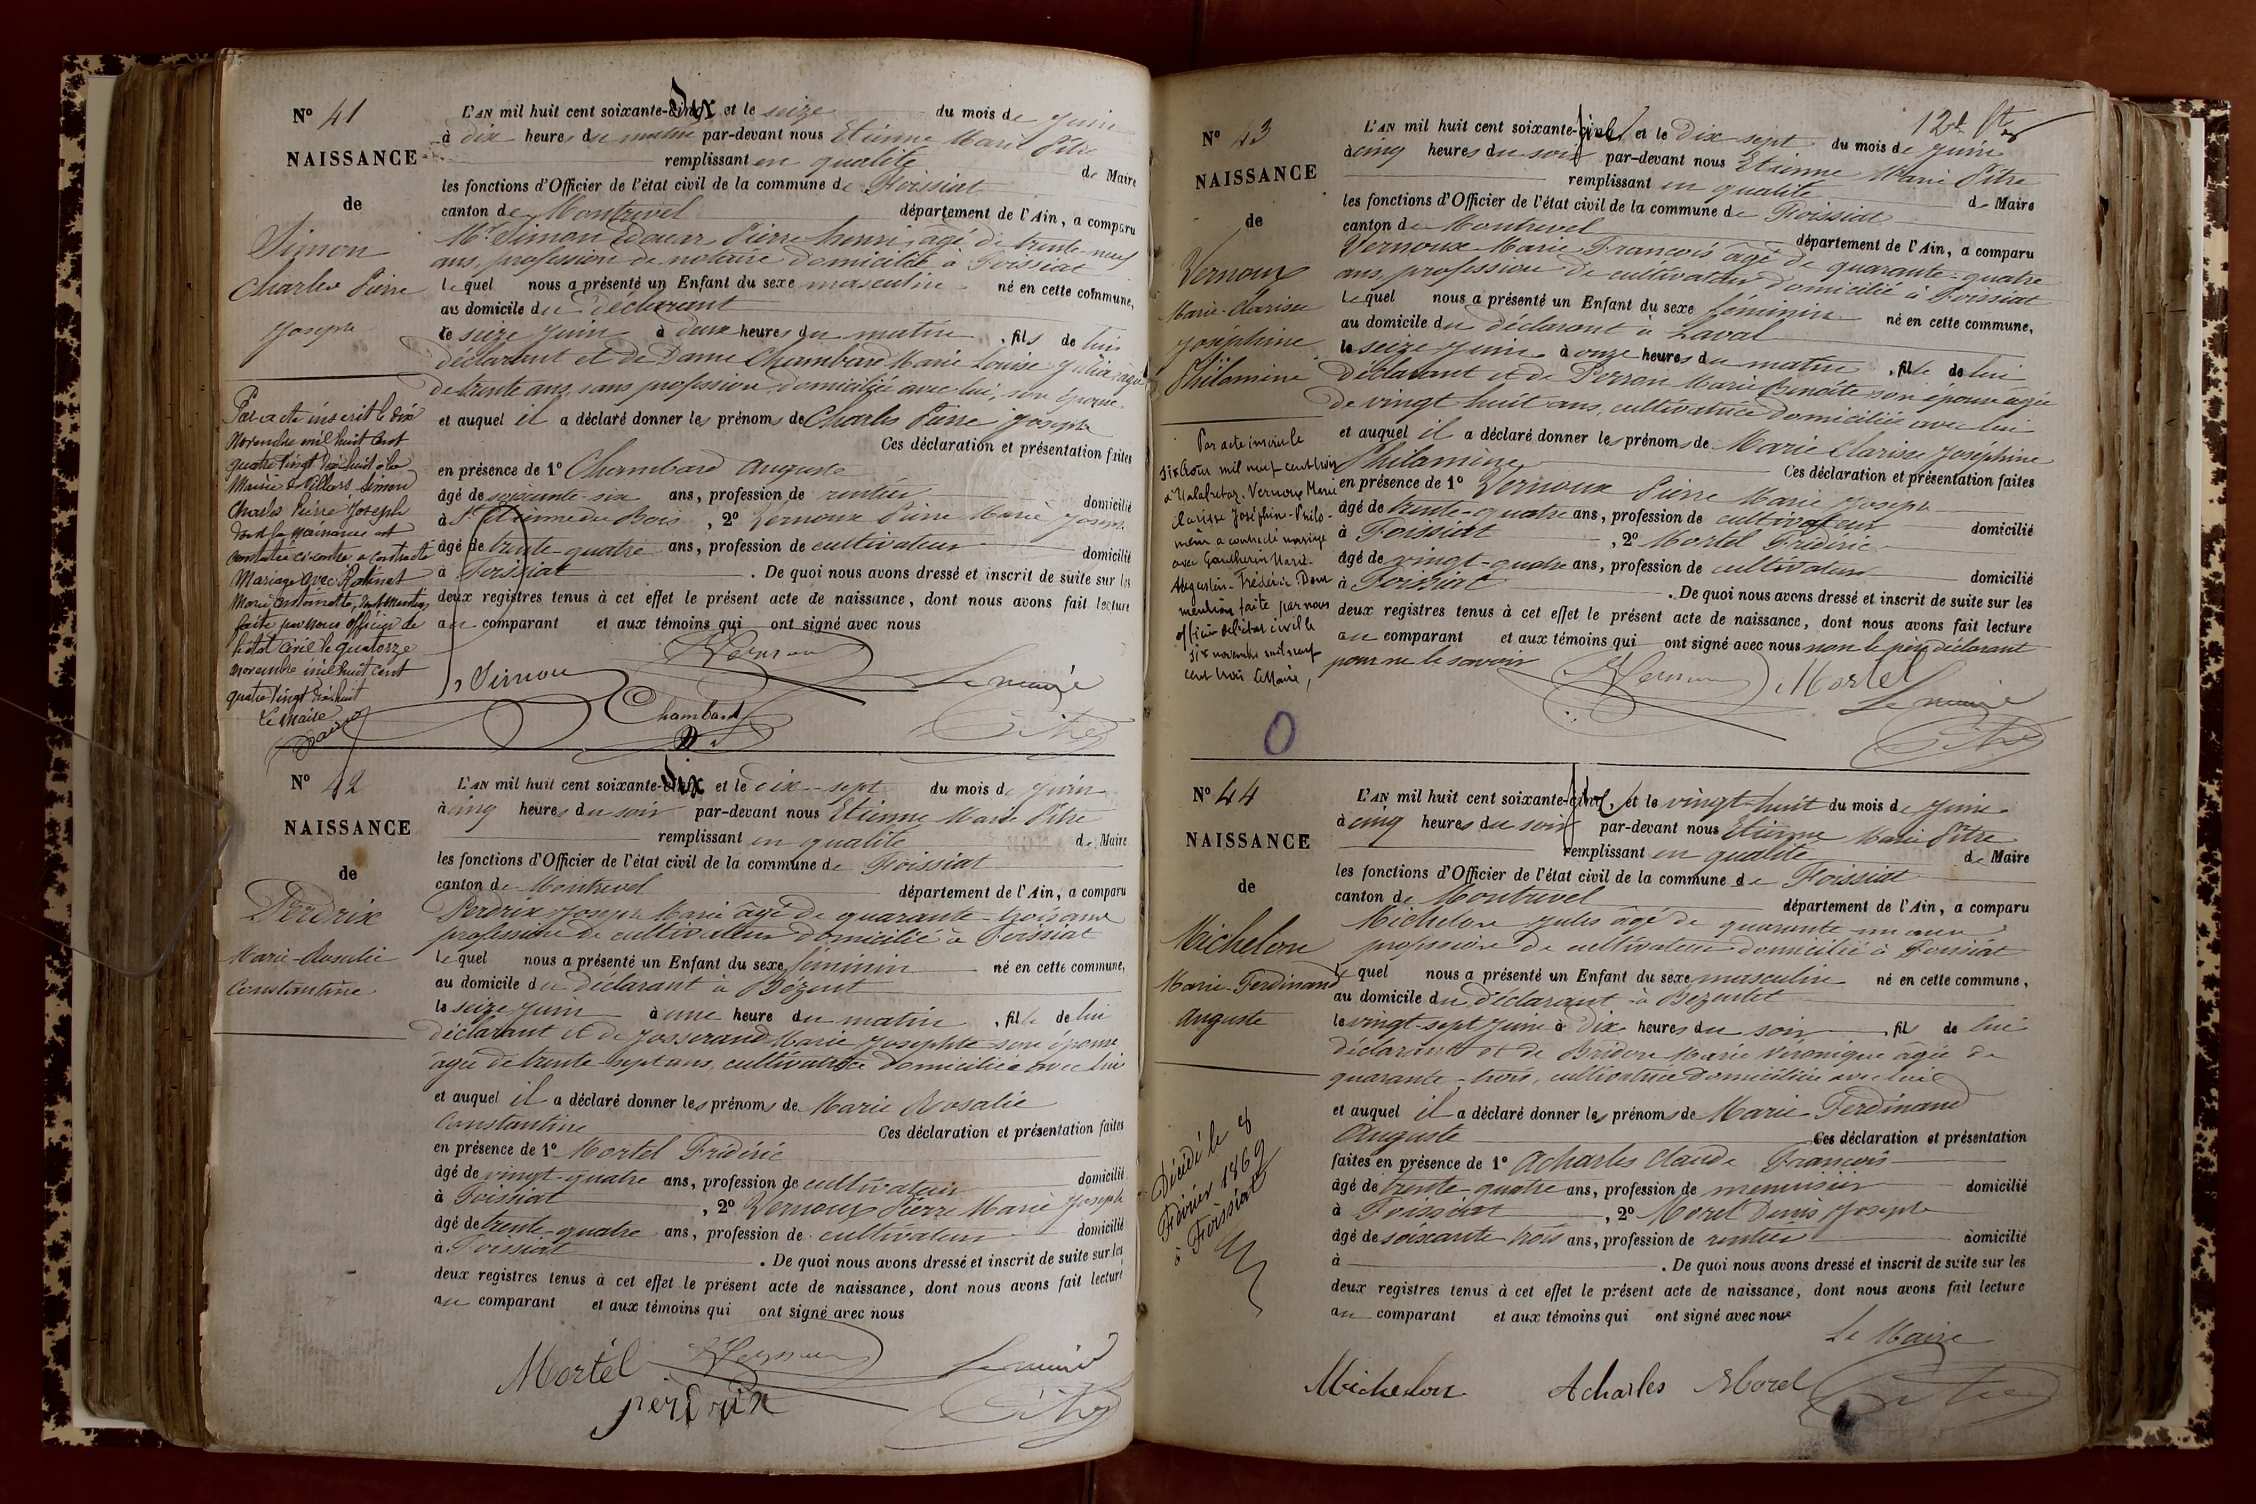 N° 41
NAISSANCE
de
Simon
Charles Pierre
Joseph
Par acte inscrit le dix
Novembre mil huit cent
quatre vingt dix huit à la
Mairie de Villars Simon
Charles Pierre Joseph
dont la naissance est
constatée ci-contre a contracté
Mariage avec
Marie Antoinette,
faite par nous officier de
l'état civil le quatorze
novembre mil huit cent
quatre vingt dix huit
Le Maire
L'AN mil huit cent soixante-dix et le seize du mois de Juin
à dix heures du matin par-devant nous Etienne Marie Pitre
remplissant en qualité de Maire
les fonctions d'Officier de l'état civil de la commune de Foissiat
canton de Montrevel département de l'Ain, a comparu
Mr Simon Edouar Pierre henri, âgé de trente-neuf
ans, profession de notaire domicilié à Foissiat
lequel nous a présenté un Enfant du sexe masculin né en cette commune,
au domicile du déclarant
le seize Juin à deux heures du matin, fils de lui
déclarant et de Dame Chambard Marie Louise Julia âgée
de trente ans, sans profession, domiciliée avec lui, son épouse
et auquel il a déclaré donner les prénoms de Charles Pierre Joseph
Ces déclaration et présentation faites
en présence de 1° Chambard Auguste
âgé de soixante-six ans, profession de rentier domicilié
à St Etienne du Bois, 2° Vernoux Pierre Marie Joseph
âgé de trente-quatre ans, profession de cultivateur domicilié
à Foissiat. De quoi nous avons dressé et inscrit de suite sur les
deux registres tenus à cet effet le présent acte de naissance, dont nous avons fait lecture
au comparant et aux témoins qui ont signé avec nous
Simon Vernoux Le maire
Chambard Pitre
N° 42
NAISSANCE
de
Perdrix
Marie-Rosalie
Constantine
L'AN mil huit cent soixante-dix et le dix-sept du mois de Juin
à cinq heures du soir par-devant nous Etienne Marie Pitre
remplissant en qualité de Maire
les fonctions d'Officier de l'état civil de la commune de Foissiat
canton de Montrevel département de l'Ain, a comparu
Perdrix Joseph Marie âgé de quarante-trois ans
profession de cultivateur domicilié à Foissiat
lequel nous a présenté un Enfant du sexe féminin né en cette commune,
au domicile du déclarant à Bézent
le seize Juin à une heure du matin, fille de lui
déclarant et de Josserand Marie Josephte son épouse
âgée de trente-sept ans, cultivatrice domiciliée avec lui
et auquel il a déclaré donner les prénoms de Marie Rosalie
Constantine Ces déclaration et présentation faites
en présence de 1° Mortel Frédéric
âgé de vingt-quatre ans, profession de cultivateur domicilié
à Foissiat, 2° Vernoux Pierre Marie Joseph
âgé de trente-quatre ans, profession de cultivateur domicilié
à Foissiat. De quoi nous avons dressé et inscrit de suite sur les
deux registres tenus à cet effet le présent acte de naissance, dont nous avons fait lecture
au comparant et aux témoins qui ont signé avec nous
Mortel Vernoux Le maire
perdrix Pitre
12e
N° 43
NAISSANCE
de
Vernoux
Marie-Clarisse
Joséphine
Philamine
Par acte inscrit le
six Août mil neuf cent trois
à Malafretaz, Vernoux Marie
Clarisse Joséphine-Philo-
mène a contracté mariage
avec Gauthier Marie-
Augustin-Frédéric Dont
mention faite par nous
officier de l'état civil le
six novembre mil neuf
cent trois Le Maire,
L'AN mil huit cent soixante et le dix sept du mois de Juin
à cinq heures du soir par-devant nous Etienne Marie Pitre
remplissant en qualité de Maire
les fonctions d'Officier de l'état civil de la commune de Foissiat
canton de Montrevel département de l'Ain, a comparu
Vernoux Marie François âgé de quarante-quatre
ans, profession de cultivateur domicilié à Foissiat
lequel nous a présenté un Enfant du sexe féminin né en cette commune,
au domicile du déclarant à Laval
le seize Juin à onze heures du matin, fille de lui
déclarant et de Perron Marie Benoîte son épouse âgée
de vingt huit ans, cultivatrice domiciliée avec lui
et auquel il a déclaré donner les prénoms de Marie Clarisse Joséphine
Philamine Ces déclaration et présentation faites
en présence de 1° Vernoux Pierre Marie Joseph
âgé de trente-quatre ans, profession de cultivateur domicilié
à Foissiat, 2° Mortel Frédéric
âgé de vingt-quatre ans, profession de cultivateur domicilié
à Foissiat. De quoi nous avons dressé et inscrit de suite sur les
deux registres tenus à cet effet le présent acte de naissance, dont nous avons fait lecture
au comparant et aux témoins qui ont signé avec nous non le père déclarant
pour ne le savoir Vernoux Mortel
Le maire
Pitre
N° 44
NAISSANCE
de
Michelon
Marie-Ferdinand
Auguste
Décédé le 4
Février 1869
à Foissiat
L'AN mil huit cent soixante et le vingt-huit du mois de Juin
à cinq heures du soir par-devant nous Etienne Marie Pitre
remplissant en qualité de Maire
les fonctions d'Officier de l'état civil de la commune de Foissiat
canton de Montrevel département de l'Ain, a comparu
Michelon Jules âgé de quarante un ans
profession de cultivateur domicilié à Foissiat
lequel nous a présenté un Enfant du sexe masculin né en cette commune,
au domicile du déclarant à Bézentet
le vingt-sept Juin à dix heures du soir, fils de lui
déclarant et de Bridon Marie Véronique âgée de
quarante-trois, cultivatrice domiciliée avec lui
et auquel il a déclaré donner les prénoms de Marie-Ferdinand
Auguste Ces déclaration et présentation
faites en présence de 1° Acharles Claude François
âgé de trente-quatre ans, profession de menuisier domicilié
à Foissiat, 2° Morel Denis Joseph
âgé de soixante-trois ans, profession de rentier domicilié
à . De quoi nous avons dressé et inscrit de suite sur les
deux registres tenus à cet effet le présent acte de naissance, dont nous avons fait lecture
au comparant et aux témoins qui ont signé avec nous
Le Maire
Michelon Acharles Morel Pitre